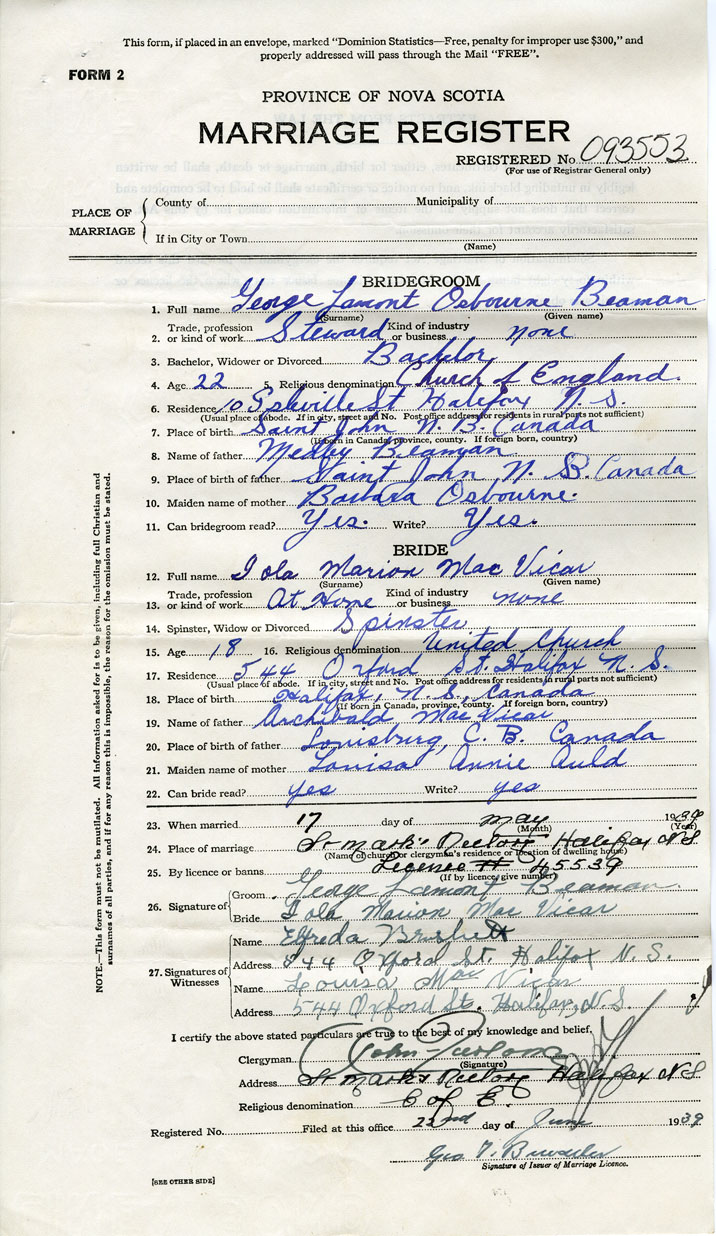 This form, if placed in an envelope, marked "Dominion Statistics—Free, penalty for improper use $300," and
properly addressed will pass through the Mail "FREE".
FORM 2
PROVINCE OF NOVA SCOTIA
MARRIAGE REGISTER
REGISTERED No. 093553
(For use of Registrar General only)
PLACE OF MARRIAGE
County of Municipality of
If in City or Town
(Name)
BRIDEGROOM
1. Full name George Lamont Osbourne Beaman
(Surname) (Given name)
2. Trade, profession or kind of work Steward Kind of industry or business none
3. Bachelor, Widower or Divorced Bachelor
4. Age 22 5. Religious denomination Church of England.
6. Residence 10 St Halifax N. S.
(Usual place of abode. If in city, street and No. Post office address for residents in rural parts not sufficient)
7. Place of birth Saint John N. B. Canada
(If born in Canada, province, county. If foreign born, country)
8. Name of father Beaman
9. Place of birth of father Saint John, N. B. Canada
10. Maiden name of mother Barbara Osbourne.
11. Can bridegroom read? Yes. Write? Yes.
BRIDE
12. Full name Iola Marion Mac Vicar
(Surname) (Given name)
13. Trade, profession or kind of work At Home Kind of industry or business none
14. Spinster, Widow or Divorced Spinster
15. Age 18 16. Religious denomination United Church
17. Residence 544 Oxford St. Halifax N. S.
(Usual place of abode. If in city, street and No. Post office address for residents in rural parts not sufficient)
18. Place of birth Halifax, N. S., Canada
(If born in Canada, province, county. If foreign born, country)
19. Name of father Archibald Mac Vicar
20. Place of birth of father Louisburg, C. B. Canada
21. Maiden name of mother Louisa Annie Auld
22. Can bride read? yes Write? yes
23. When married 17 day of May 1939
(Month) (Year)
24. Place of marriage St Mark's Rectory Halifax NS
(Name of church or clergyman's residence or location of dwelling house)
25. By licence or banns Licence # 45539
(If by licence, give number)
26. Signature of
Groom George Lamont Beaman.
Bride Iola Marion Mac Vicar
27. Signatures of Witnesses
Name Elfreda
Address 544 Oxford St. Halifax N. S.
Name Louisa Mac Vicar
Address 544 Oxford St. Halifax, N. S.
I certify the above stated particulars are true to the best of my knowledge and belief.
Clergyman John
(Signature)
Address St Mark's Rectory Halifax NS
Religious denomination C of E.
Registered No. Filed at this office 22nd day of June 1939
Geo T.
Signature of Issuer of Marriage Licence.
[SEE OTHER SIDE]
NOTE.—This form must not be mutilated. All information asked for is to be given, including full Christian and
surnames of all parties, and if for any reason this is impossible, the reason for the omission must be stated.